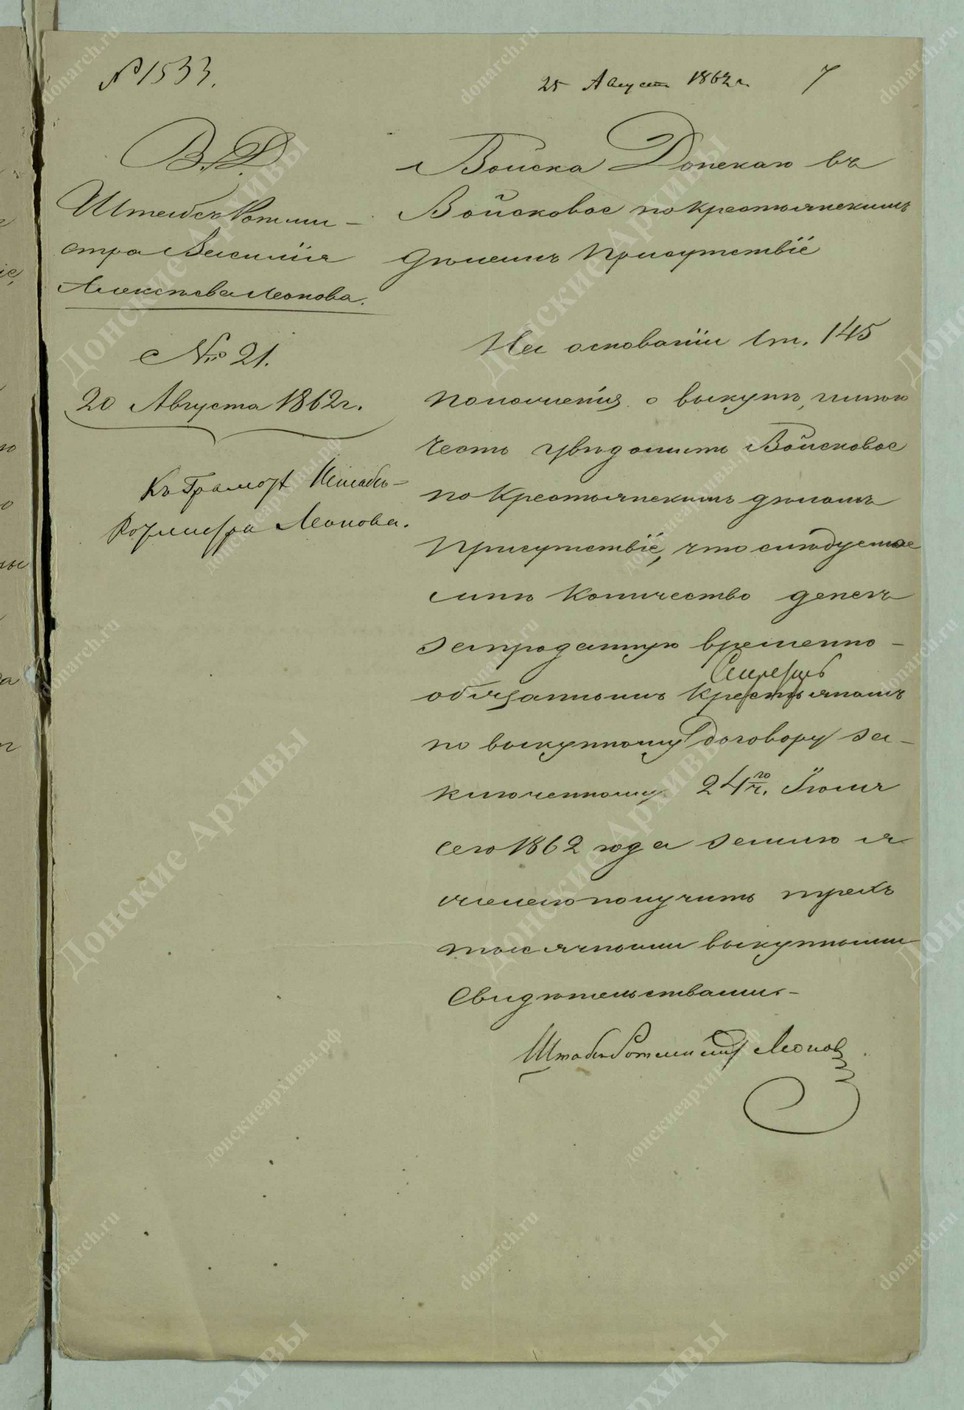 № 1533.
25 Августа 1862 г. 7
В. Д.
Штабсъ Ротми-
стра Василія
Алексѣева Леонова.
№ 21.
20 Августа 1862 г.
Къ Грамотѣ Штабсъ-
Ротмистра Леонова.
Войска Донскаго въ
Войсковое по крестьянскимъ
дѣламъ Присутствіе
На основаніи ст. 145
положенія о выкупѣ, имѣю
честь увѣдомить Войсковое
по Крестьянскимъ дѣламъ
Присутствіе, что слѣдуемое
мнѣ Количество денегъ
за проданную временно-
обязаннымъ крестьянамъ
по выкупному договору за-
ключенному 24го ч. Іюля
сего 1862 года землю я
желаю получить трехъ
тысячными выкупными
Свидѣтельствами.-
Штабсъ Ротмистръ Леонов